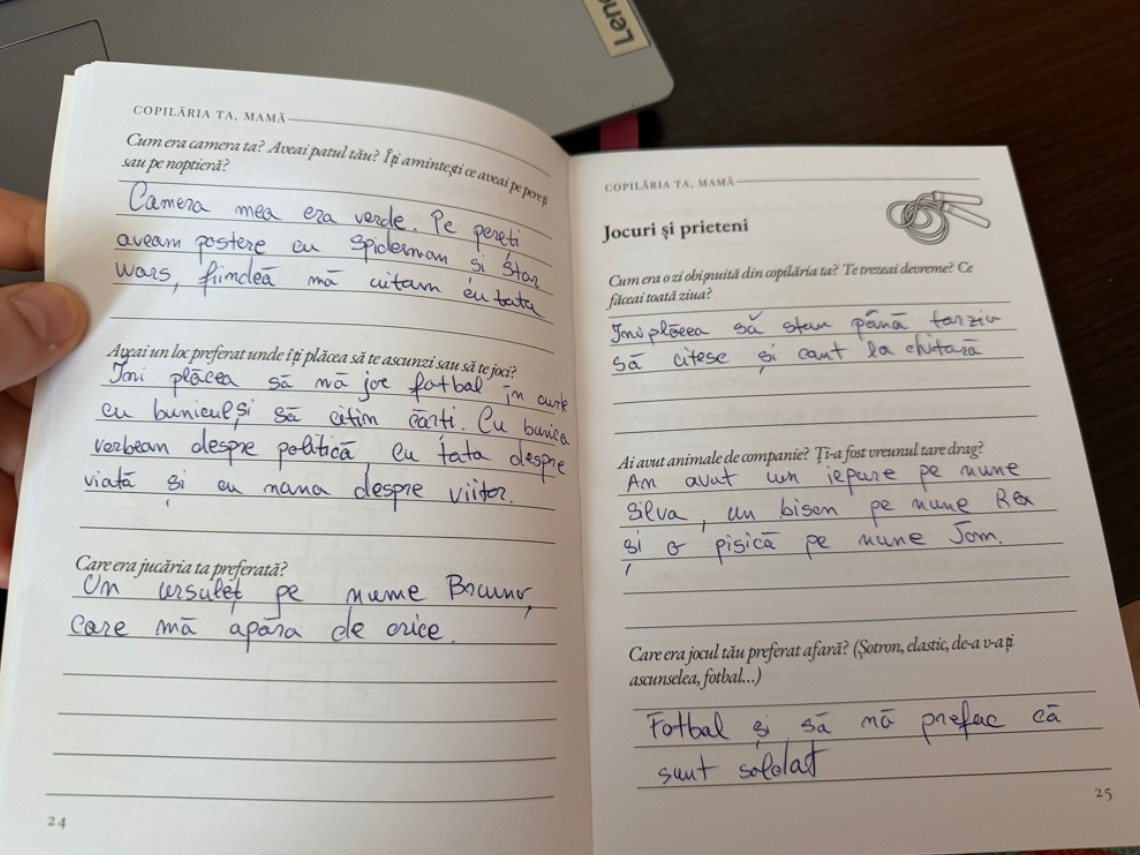 Leno
COPILĂRIA TA, MAMĂ
Cum era camera ta? Aveai patul tău? Îți amintești ce aveai pe pereți
sau pe noptieră?
Camera mea era verde. Pe pereți
aveam postere cu Spiderman și Star
Wars, fiindcă mă uitam cu tata
Aveai un loc preferat unde îți plăcea să te ascunzi sau să te joci?
Îmi plăcea să mă joc fotbal în curte
cu bunicul și să citim cărți. Cu bunica
vorbeam despre politică, cu tata despre
viață și cu mama despre viitor.
Care era jucăria ta preferată?
Un ursuleț pe nume Bruno,
care mă apăra de orice.
24
COPILĂRIA TA, MAMĂ
Jocuri și prieteni
Cum era o zi obișnuită din copilăria ta? Te trezeai devreme? Ce
făceai toată ziua?
Îmi plăcea să stau până tarziu
să citesc și cant la chitară
Ai avut animale de companie? Ți-a fost vreunul tare drag?
Am avut un iepure pe nume
Silva, un bison pe nume Rex
și o pisică pe nume Tom.
Care era jocul tău preferat afară? (Șotron, elastic, de-a v-ați
ascunselea, fotbal...)
Fotbal și să mă prefac că
sunt soldat
25